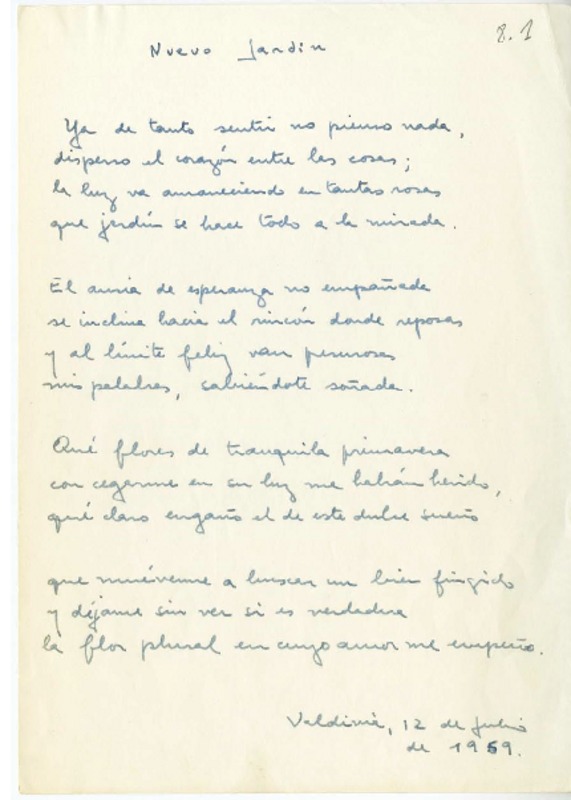 8.1
Nuevo Jardín
Ya de tanto sentir no pienso nada,
disperso el corazón entre las cosas;
la luz va amaneciendo en tantas rosas
que jardín se hace todo a la mirada.
El ansia de esperanza no empañada
se inclina hacia el rincón donde reposas
y al límite feliz van presurosas
mis palabras, sabiéndote soñada.
Qué flores de tranquila primavera
con cegarme en su luz me habrán herido,
qué claro engaño el de este dulce sueño
que muéveme a buscar un bien fingido
y déjame sin ver si es verdadera
la flor plural en cuyo amor me empeño.
Valdivia, 12 de Julio
de 1959.